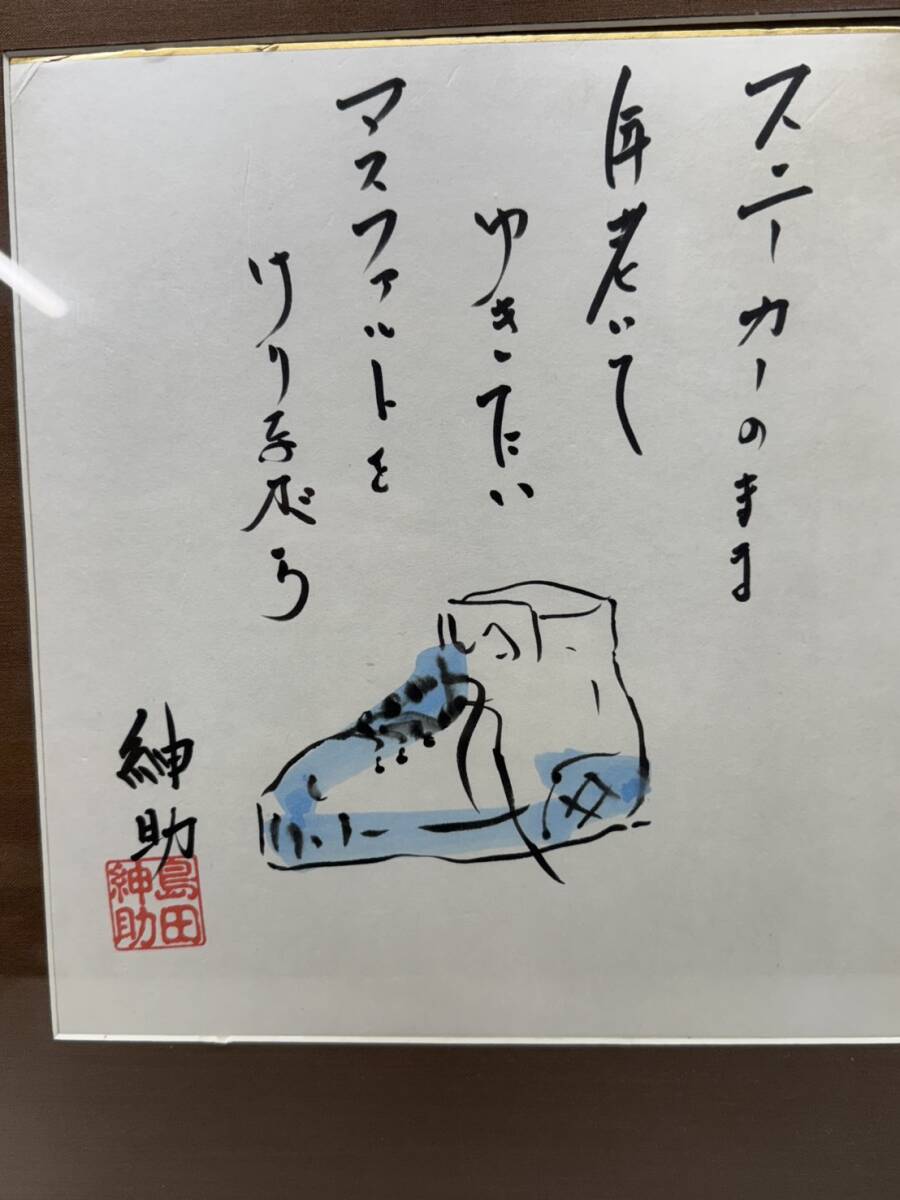 スニーカーのまま
年老いて
ゆきたい
アスファルトを
けりながら
紳助
島田
紳助